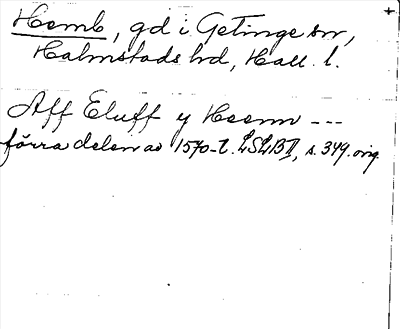 Hemb, gd i Getinge sn,
Halmstads hd, Hall. l.
Aff Eluff y Heem ---
förra delen av 1570-t. LSLB II, s. 349. orig